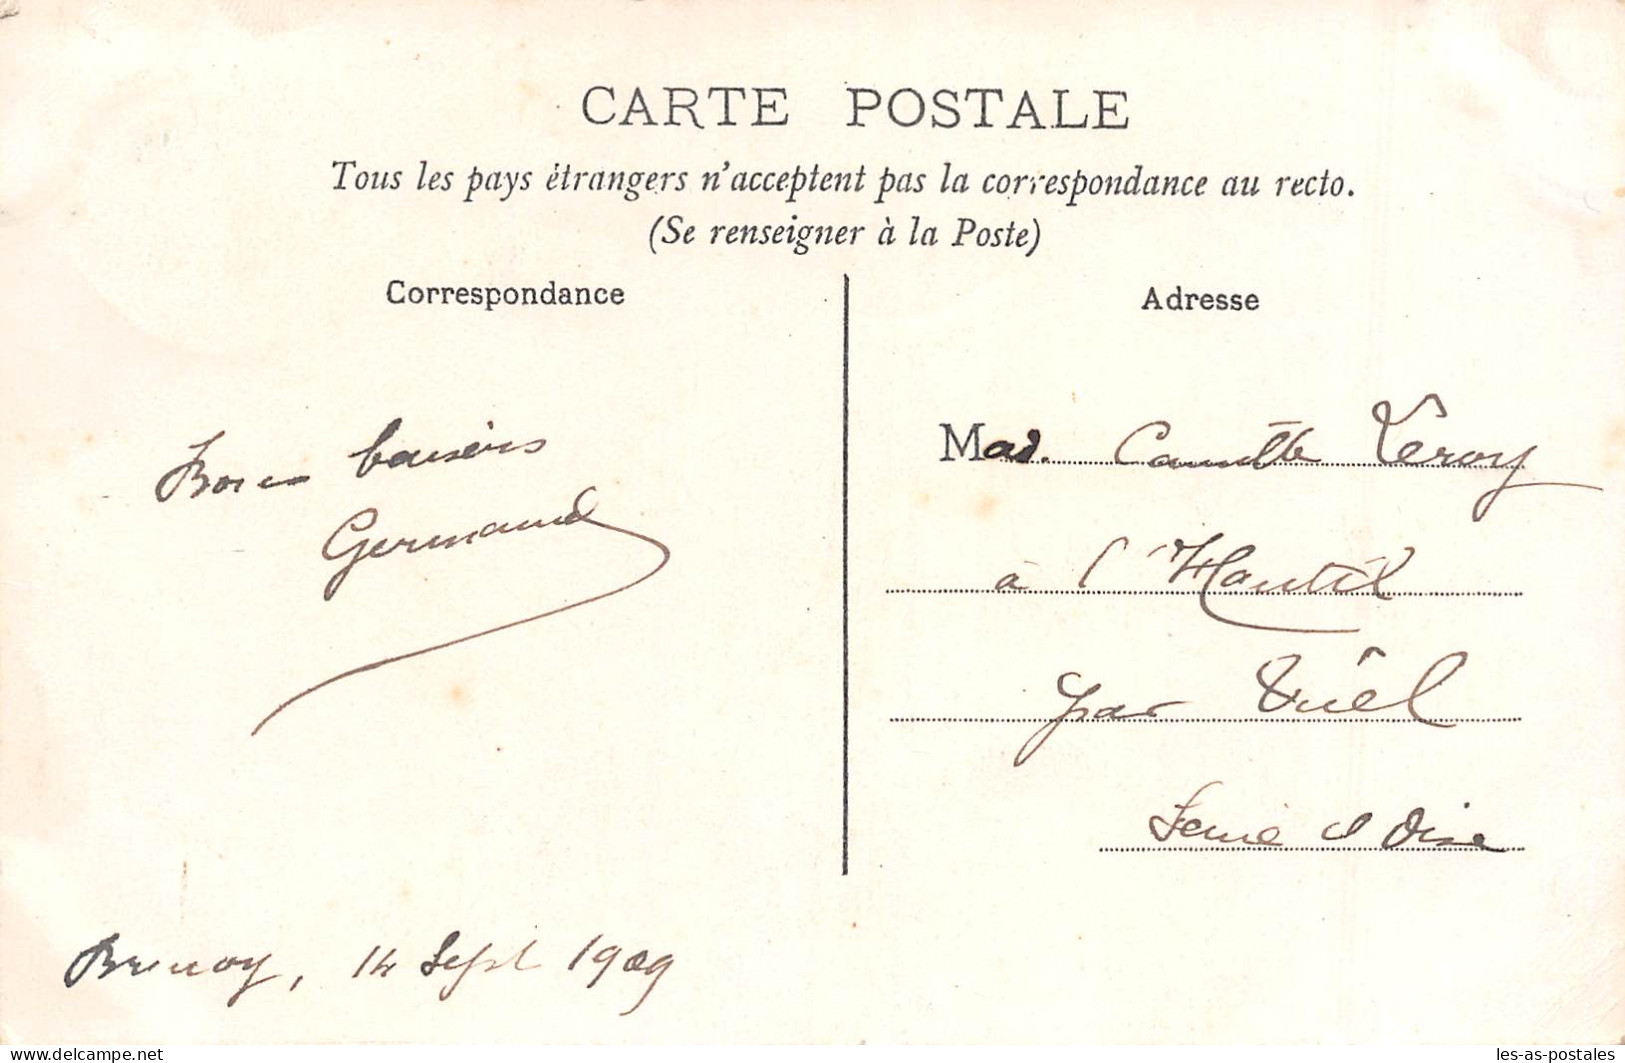 CARTE POSTALE
Tous les pays étrangers n'acceptent pas la correspondance au recto.
(Se renseigner à la Poste)
Correspondance
Adresse
Bons baisers
Germaine
Brunoy, 14 Sept 1909
Mad. Camille Leroy
à l'Hautil
par Triel
Seine et Oise
www.delcampe.net
les-as-postales